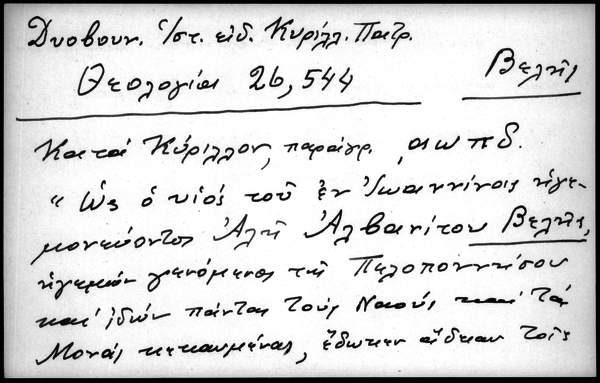 Δυοβουν. Ἱστ. εἰδ. Κυρίλλ. Πατρ.
Θεολογία 26, 544
Βελῆς
Κατά Κύριλλον, παράγρ. ,αωπδ.
"Ὡς ὁ υἱός τοῦ ἐν Ἰωαννίνοις ἡγε-
μονεύοντος Ἀλῆ Ἀλβανίτου Βελῆς,
ἡγεμών γενόμενος τῆς Πελοποννήσου
καί ἰδών πάντας τούς Ναούς καί τάς
Μονάς κεκαυμένας, ἔδωκεν ἄδειαν τοῖς